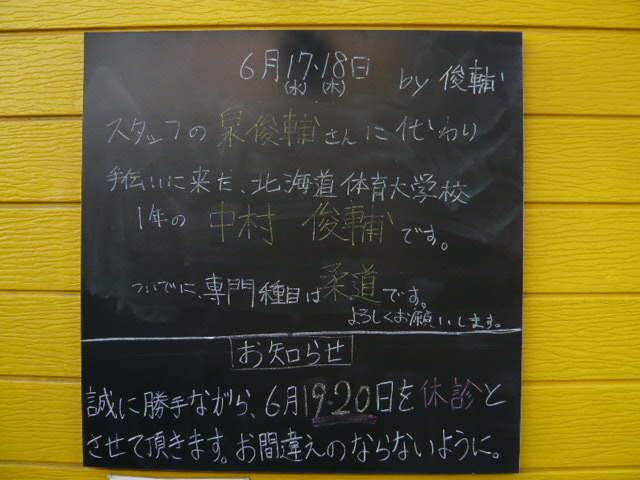 6月17・18日 by 俊輔
(水) (木)
スタッフの 泉俊輔さんに代わり
手伝いに来た、北海道体育大学校
1年の 中村 俊輔です。
ついでに、専門種目は柔道です。
よろしくお願いします。
お知らせ
誠に勝手ながら、6月19・20日を休診と
させて頂きます。お間違えのならないように。